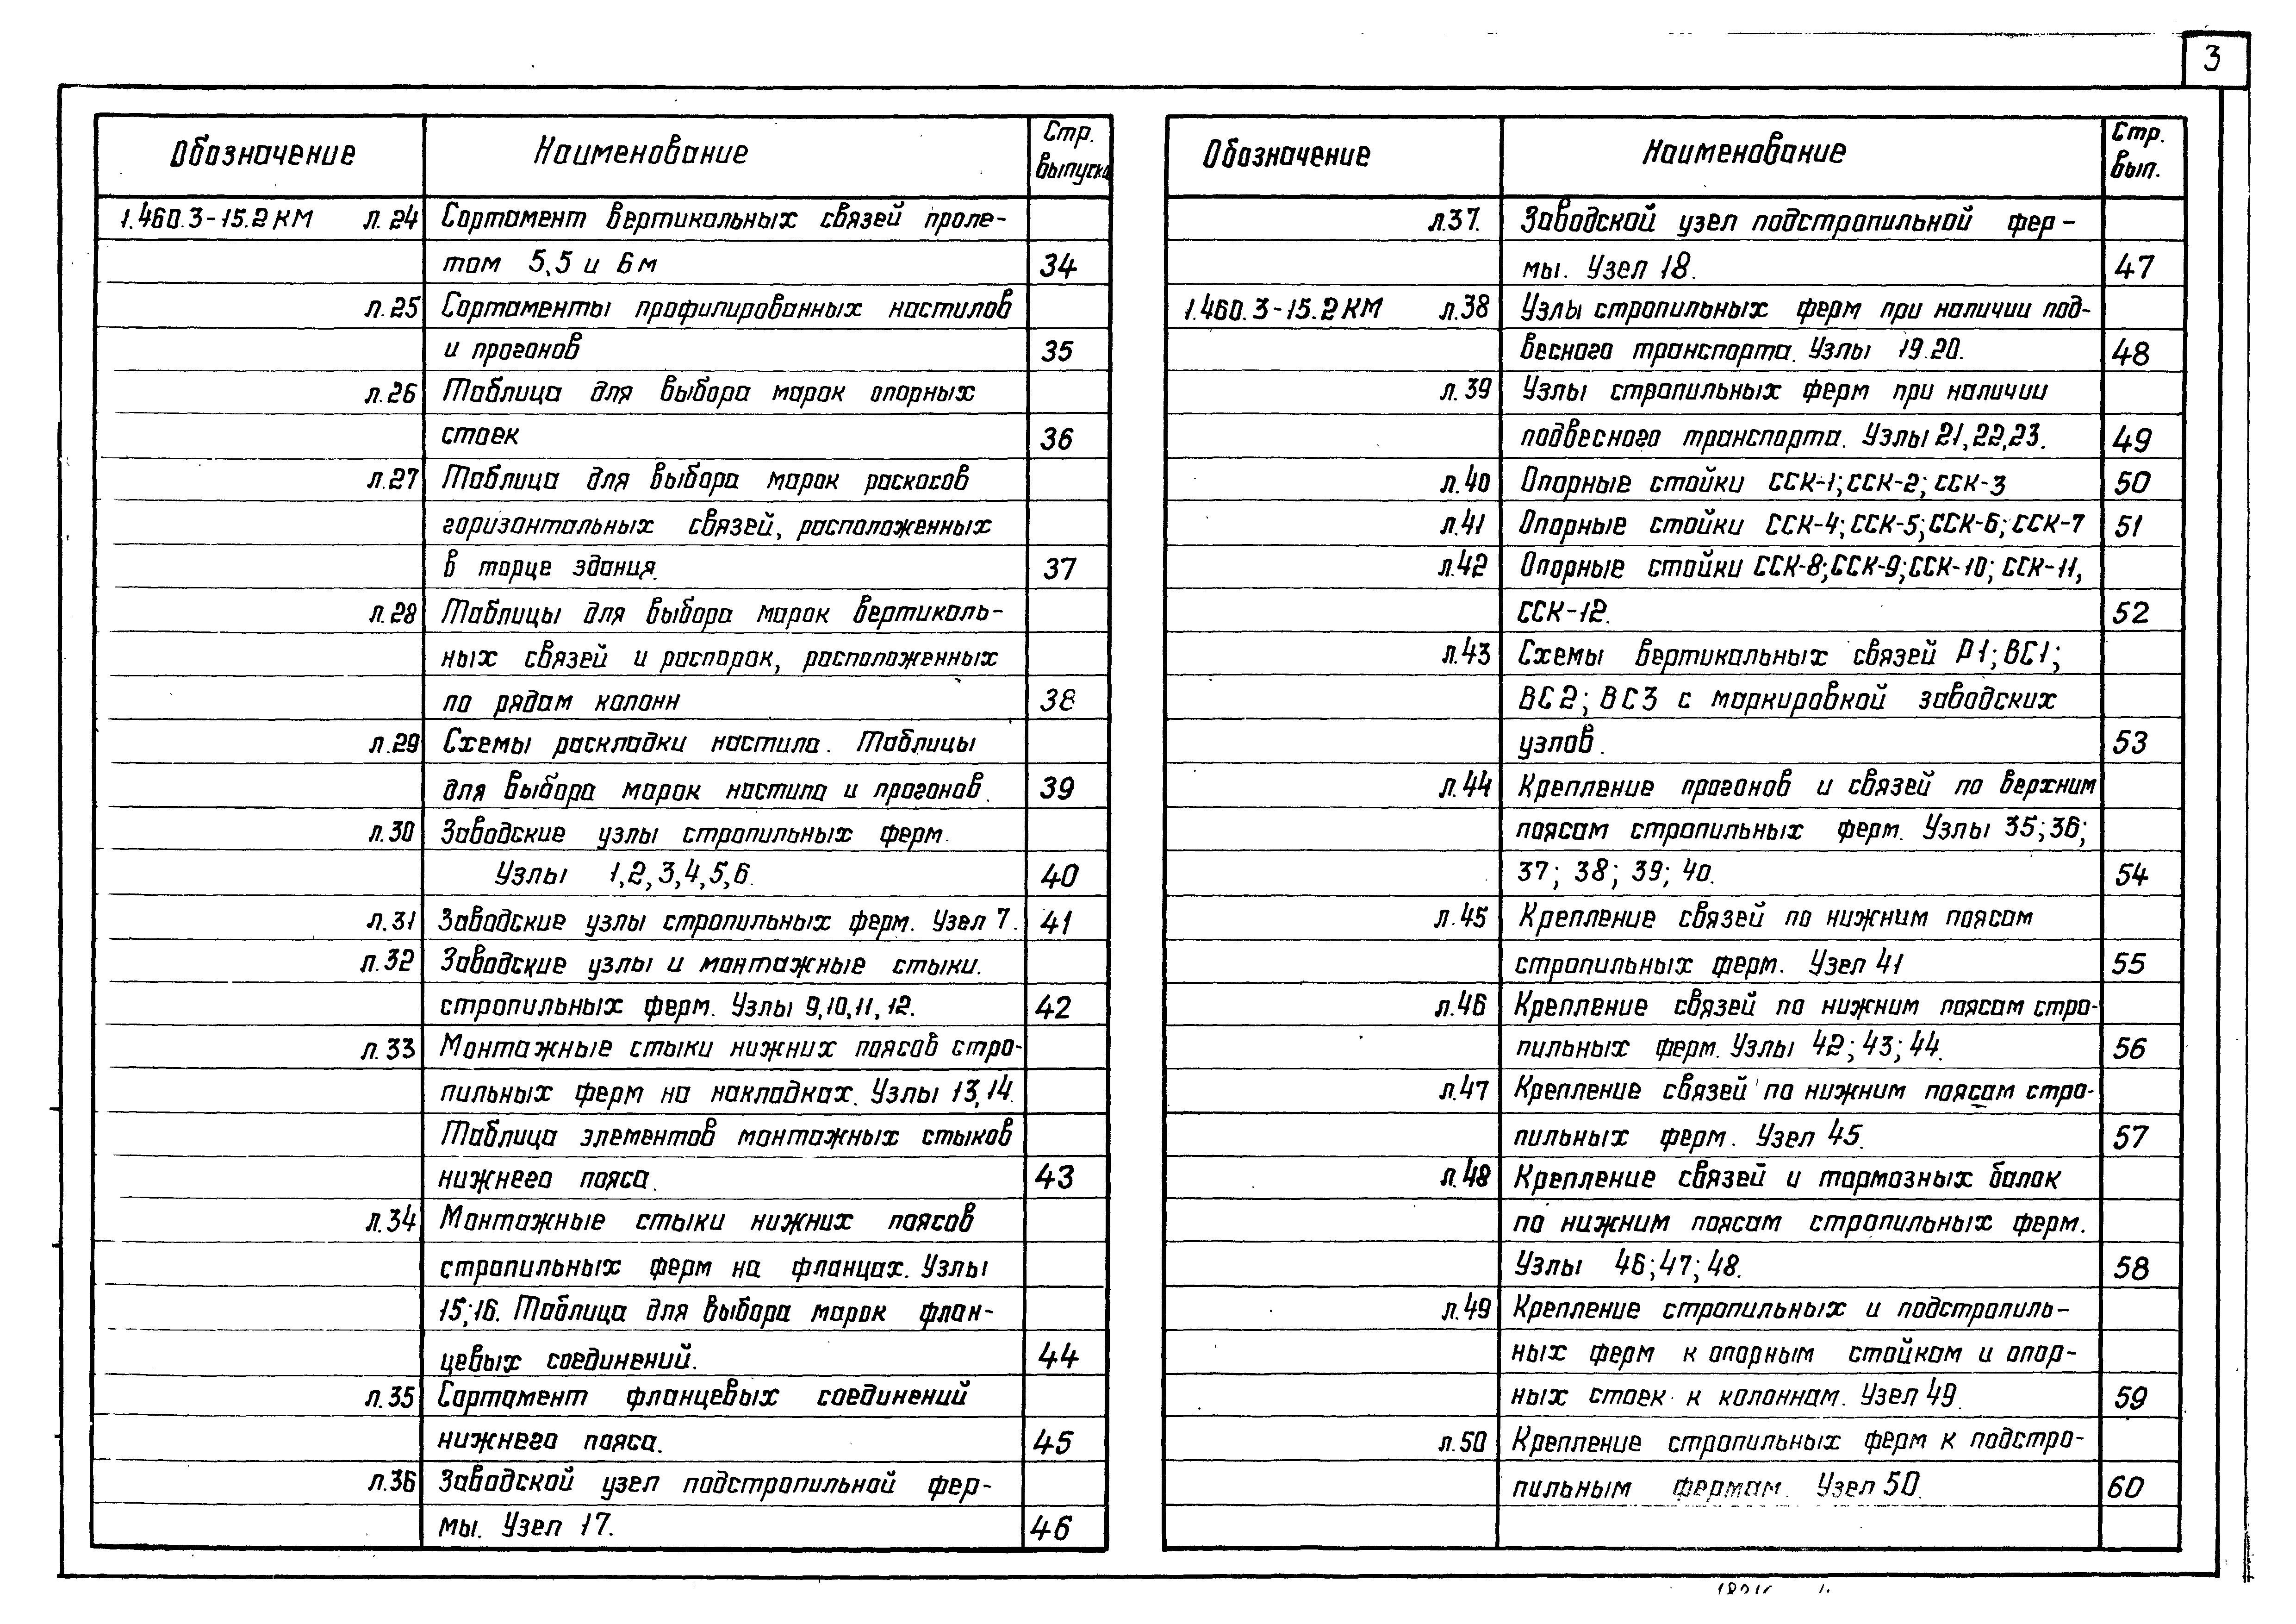 3
Обозначение Наименование Стр. выпуска
1.460.3-15.2КМ л.24 Сортамент вертикальных связей проле-
том 5,5 и 6м 34
л.25 Сортаменты профилированных настилов
и прогонов 35
л.26 Таблица для выбора марок опорных
стоек 36
л.27 Таблица для выбора марок раскосов
горизонтальных связей, расположенных
в торце здания. 37
л.28 Таблицы для выбора марок вертикаль-
ных связей и распорок, расположенных
по рядам колонн 38
л.29 Схемы раскладки настила. Таблицы
для выбора марок настила и прогонов. 39
л.30 Заводские узлы стропильных ферм.
Узлы 1,2,3,4,5,6. 40
л.31 Заводские узлы стропильных ферм. Узел 7. 41
л.32 Заводские узлы и монтажные стыки.
стропильных ферм. Узлы 9,10,11,12. 42
л.33 Монтажные стыки нижних поясов стро-
пильных ферм на накладках. Узлы 13,14.
Таблица элементов монтажных стыков
нижнего пояса. 43
л.34 Монтажные стыки нижних поясов
стропильных ферм на фланцах. Узлы
15;16. Таблица для выбора марок флан-
цевых соединений. 44
л.35 Сортамент фланцевых соединений
нижнего пояса. 45
л.36 Заводской узел подстропильной фер-
мы. Узел 17. 46
Обозначение Наименование Стр. вып.
л.37. Заводской узел подстропильной фер-
мы. Узел 18. 47
1.460.3-15.2КМ л.38 Узлы стропильных ферм при наличии под-
весного транспорта. Узлы 19.20. 48
л.39 Узлы стропильных ферм при наличии
подвесного транспорта. Узлы 21,22,23. 49
л.40 Опорные стойки ССК-1; ССК-2; ССК-3 50
л.41 Опорные стойки ССК-4; ССК-5; ССК-6; ССК-7 51
л.42 Опорные стойки ССК-8; ССК-9; ССК-10; ССК-11,
ССК-12. 52
л.43 Схемы вертикальных связей Р1; ВС1;
ВС2; ВС3 с маркировкой заводских
узлов. 53
л.44 Крепление прогонов и связей по верхним
поясам стропильных ферм. Узлы 35; 36;
37; 38; 39; 40. 54
л.45 Крепление связей по нижним поясам
стропильных ферм. Узел 41 55
л.46 Крепление связей по нижним поясам стро-
пильных ферм. Узлы 42; 43; 44. 56
л.47 Крепление связей по нижним поясам стро-
пильных ферм. Узел 45. 57
л.48 Крепление связей и тормозных балок
по нижним поясам стропильных ферм.
Узлы 46; 47; 48. 58
л.49 Крепление стропильных и подстропиль-
ных ферм к опорным стойкам и опор-
ных стоек к колоннам. Узел 49 59
л.50 Крепление стропильных ферм к подстро-
пильным фермам. Узел 50. 60